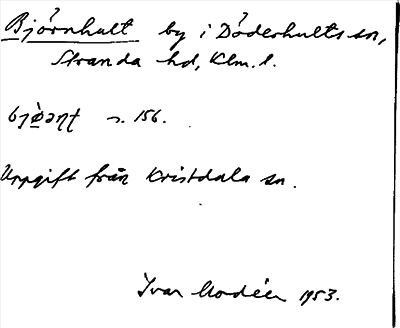 Björnhult by i Döderhults sn,
Stranda hd, Klm. l.
s. 156.
Uppgift från Kristdala sn.
Ivar Modéer 1953.